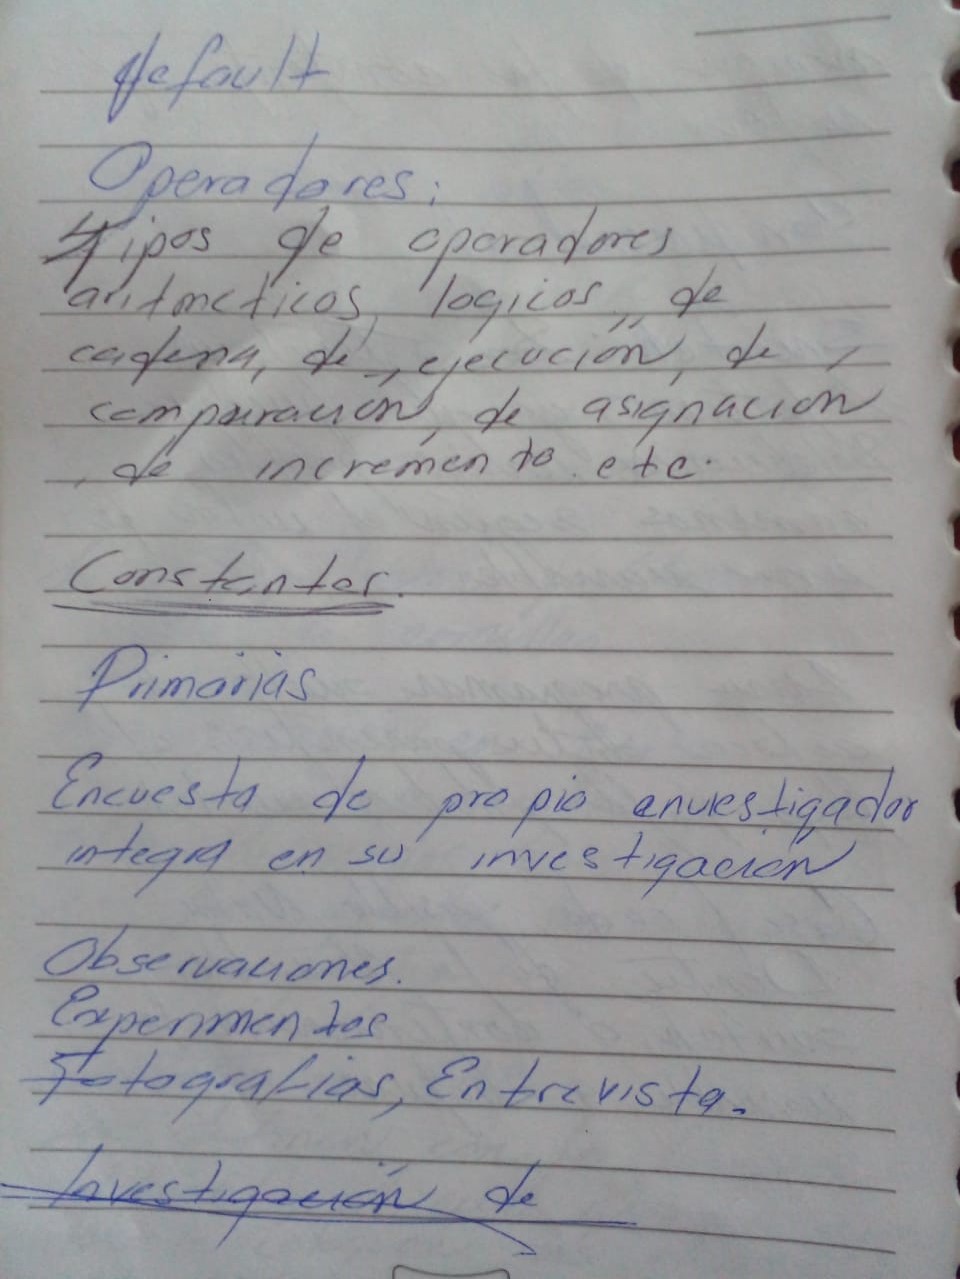 default
Operadores:
Tipos de operadores
aritmeticos, logicos, de
cadena, de, ejecución, de,
comparacion, de asignación
, de incremento. etc.
Constantes.
Primarias
Encuesta de propio envestigador
integra en su investigación
Observaciones.
Experimentos
Fotografias, Entrevista.
Investigación de